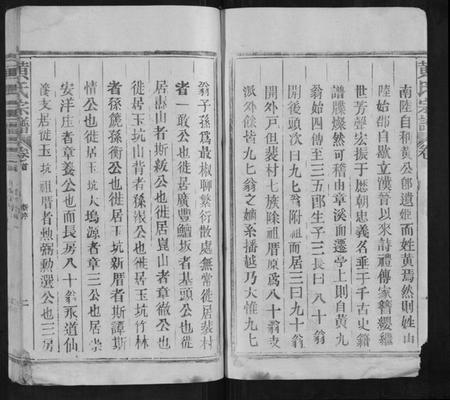 黄氏宗譜
南陸自稱黄公邮遺姬而姓黄焉然則姓
陸始郡自歇立漢晉以來詩禮傳家簪纓繼
世芳聲宏振于歷朝忠義名垂于千古史籍
譜牒燦然可稽由章溪而遷學上則自黄九
翁始四傳至三五郎生子三長曰八十翁
開後頭次曰九翁附祖而居三曰九十翁
開外戸但裴村七族除祖厝原爲八十翁支
派外餘皆九七翁之嫡系播越乃大惟九七
翁子孫爲最椒聊繁衍散處無常徙居裴村
者一敢公也徙居廣豐鱷坂者基頭公也徙
居壽山者斯敘公也徙居崑山者章徹公也
徙居玉坑山背者孫淑公也徙居玉坑竹林
者孫箎孫衡公也徙居玉坑新厝者斯譚斯
情公也徙居玉坑大塢源者章三公也居
安洋庄者章養公也而長房八十翁永道仙
養支居徙玉坑祖厝者炴弼勳選公也三房
黄氏宗譜
卷首
二